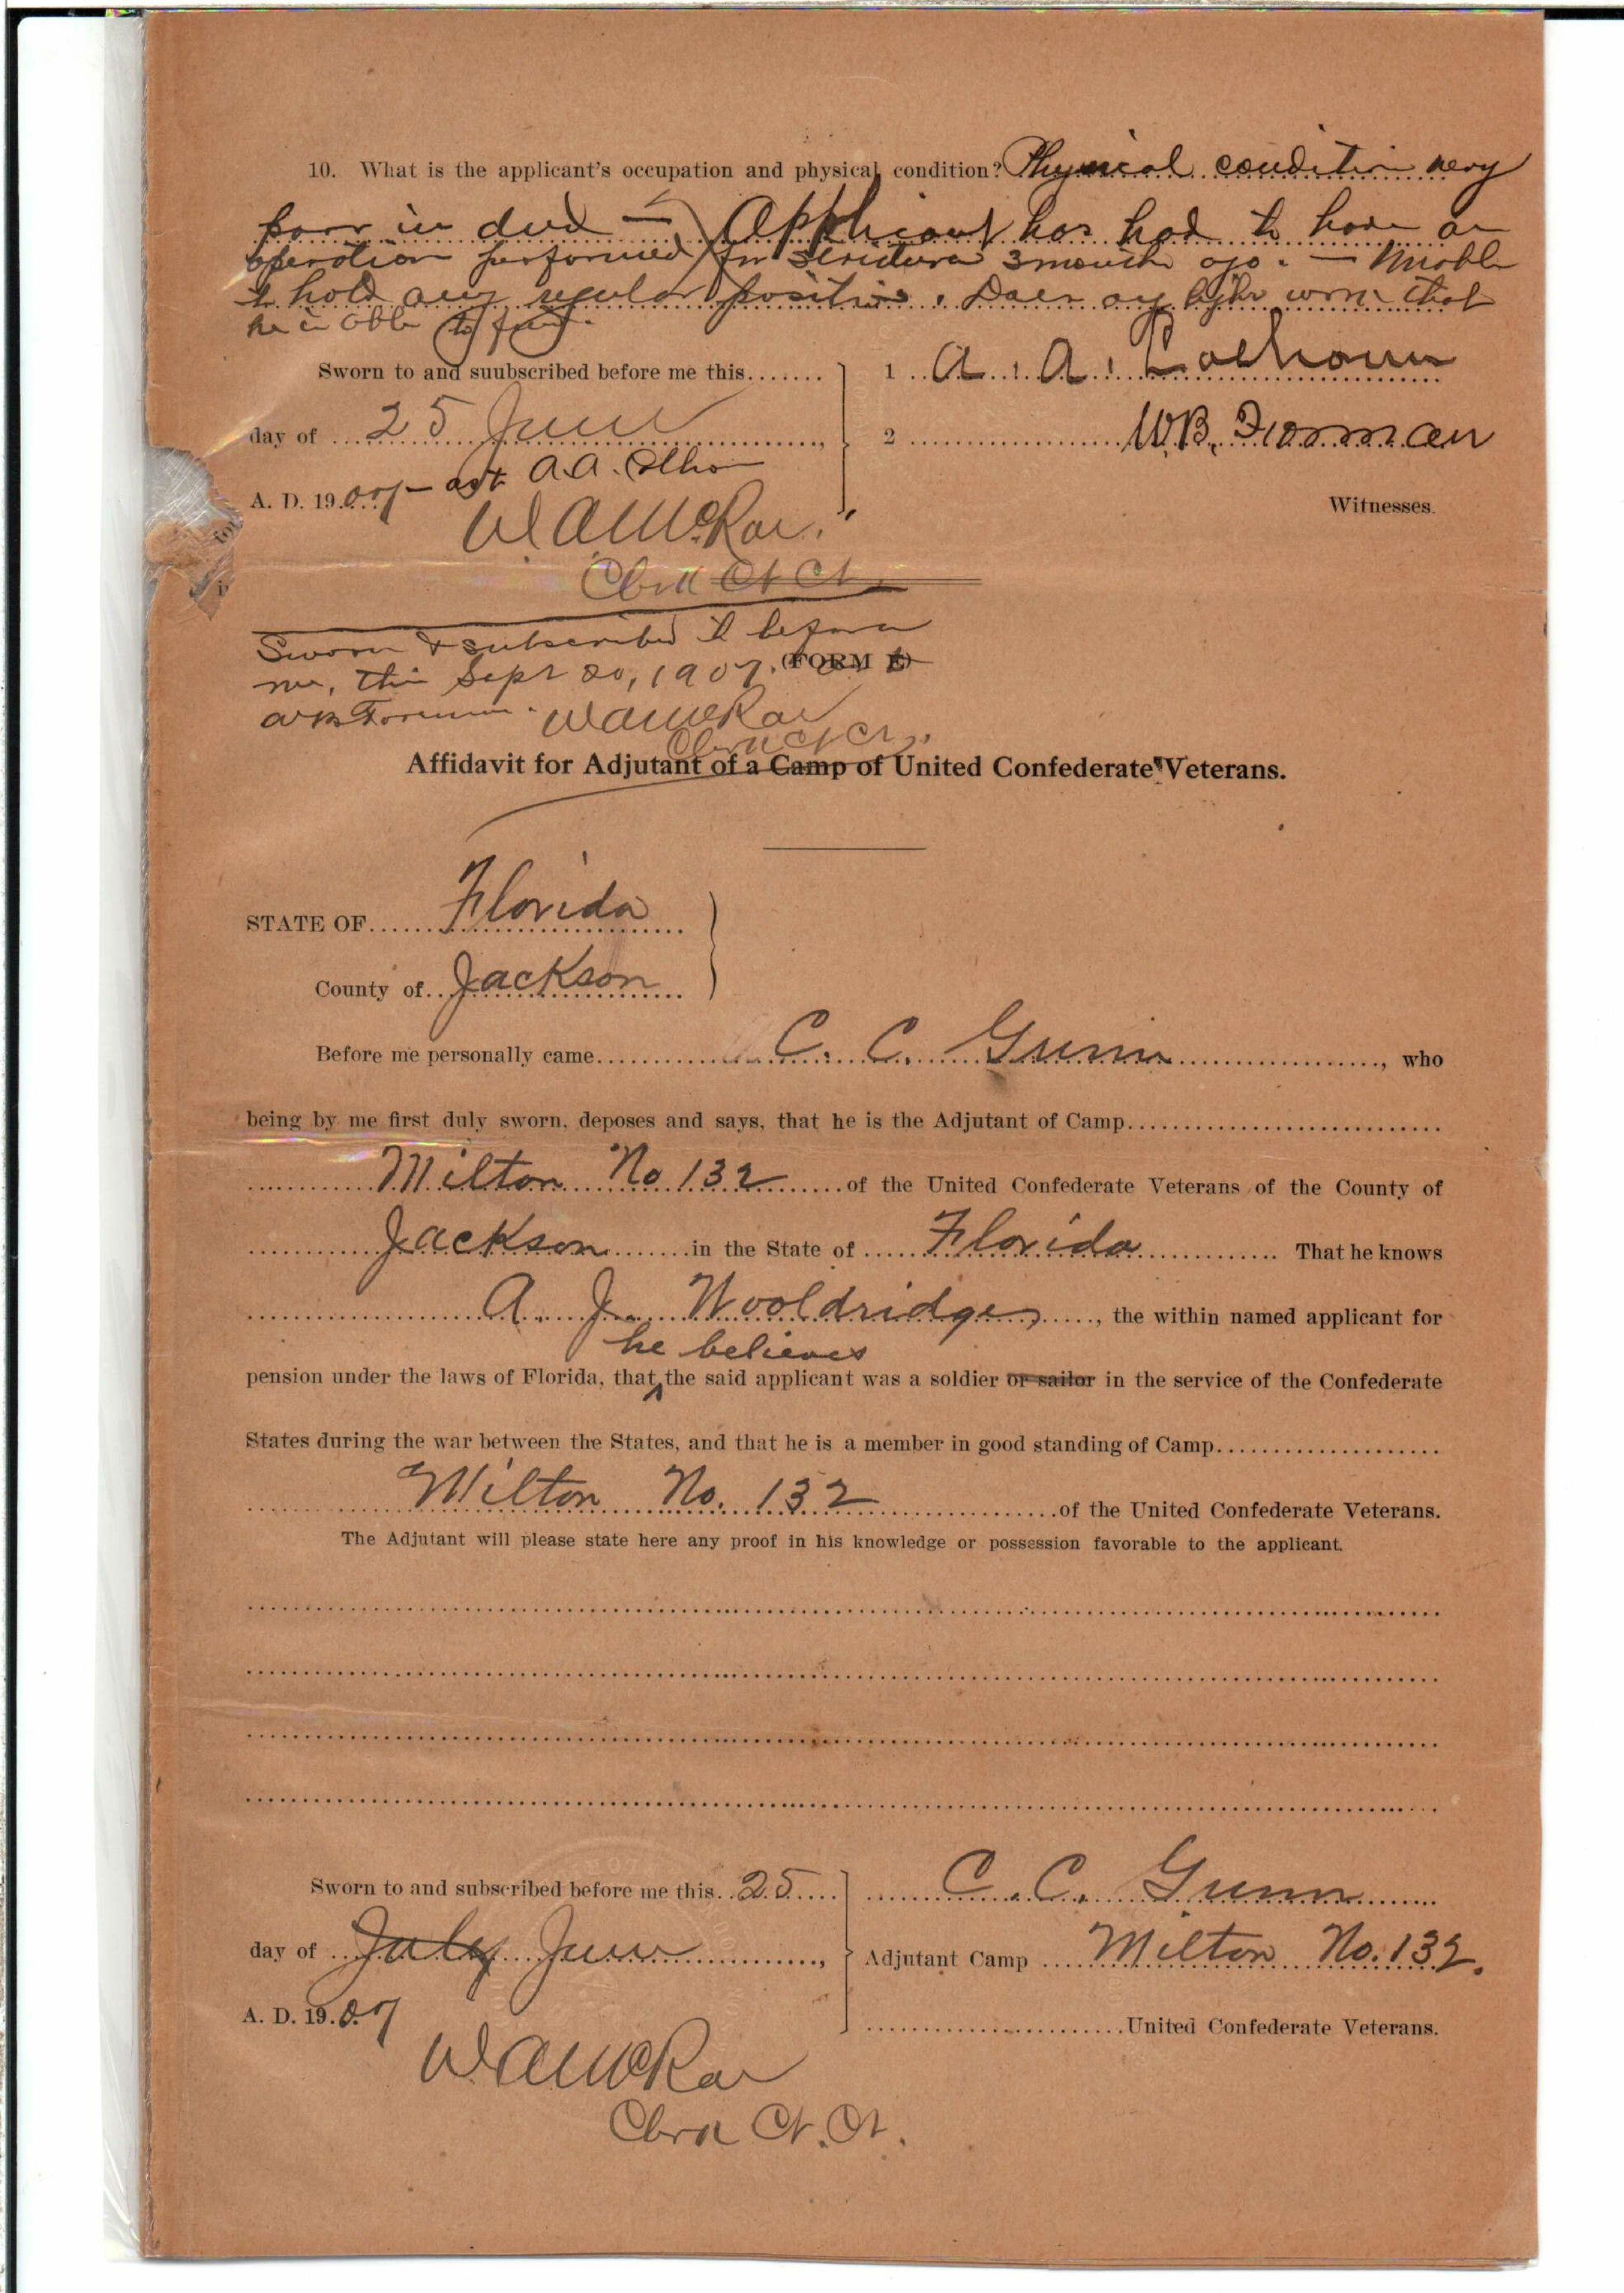 10. What is the applicant's occupation and physical condition? Physical condition very
poor in deed — Applicant has had to have an
operation performed for Stricture 3 month ago. — Unable
to hold any regular position. Does any light work that
he is able to find.
Sworn to and suubscribed before me this....... 1 A. A. Calhoun
day of 25 June, 2 W.B. Forman
A. D. 1907 — as to A.A. Calhoun Witnesses.
W A McRae.
Clerk Ct Ct
Sworn & subscribed to before
me, this Sept 20, 1907. (FORM E)
W B Foreman. W A McRae
Clerk Ct Ct.
Affidavit for Adjutant of a Camp of United Confederate Veterans.
STATE OF Florida
County of Jackson
Before me personally came C. C. Gunn, who
being by me first duly sworn, deposes and says, that he is the Adjutant of Camp
Milton No 132 of the United Confederate Veterans of the County of
Jackson in the State of Florida. That he knows
A. J. Wooldridge, the within named applicant for
he believes
pension under the laws of Florida, that the said applicant was a soldier or sailor in the service of the Confederate
States during the war between the States, and that he is a member in good standing of Camp
Milton No. 132 of the United Confederate Veterans.
The Adjutant will please state here any proof in his knowledge or possession favorable to the applicant.
Sworn to and subscribed before me this 25 C. C. Gunn
day of July June, Adjutant Camp Milton No. 132.
A. D. 1907 United Confederate Veterans.
W A McRae
Clerk Ct. Ct.